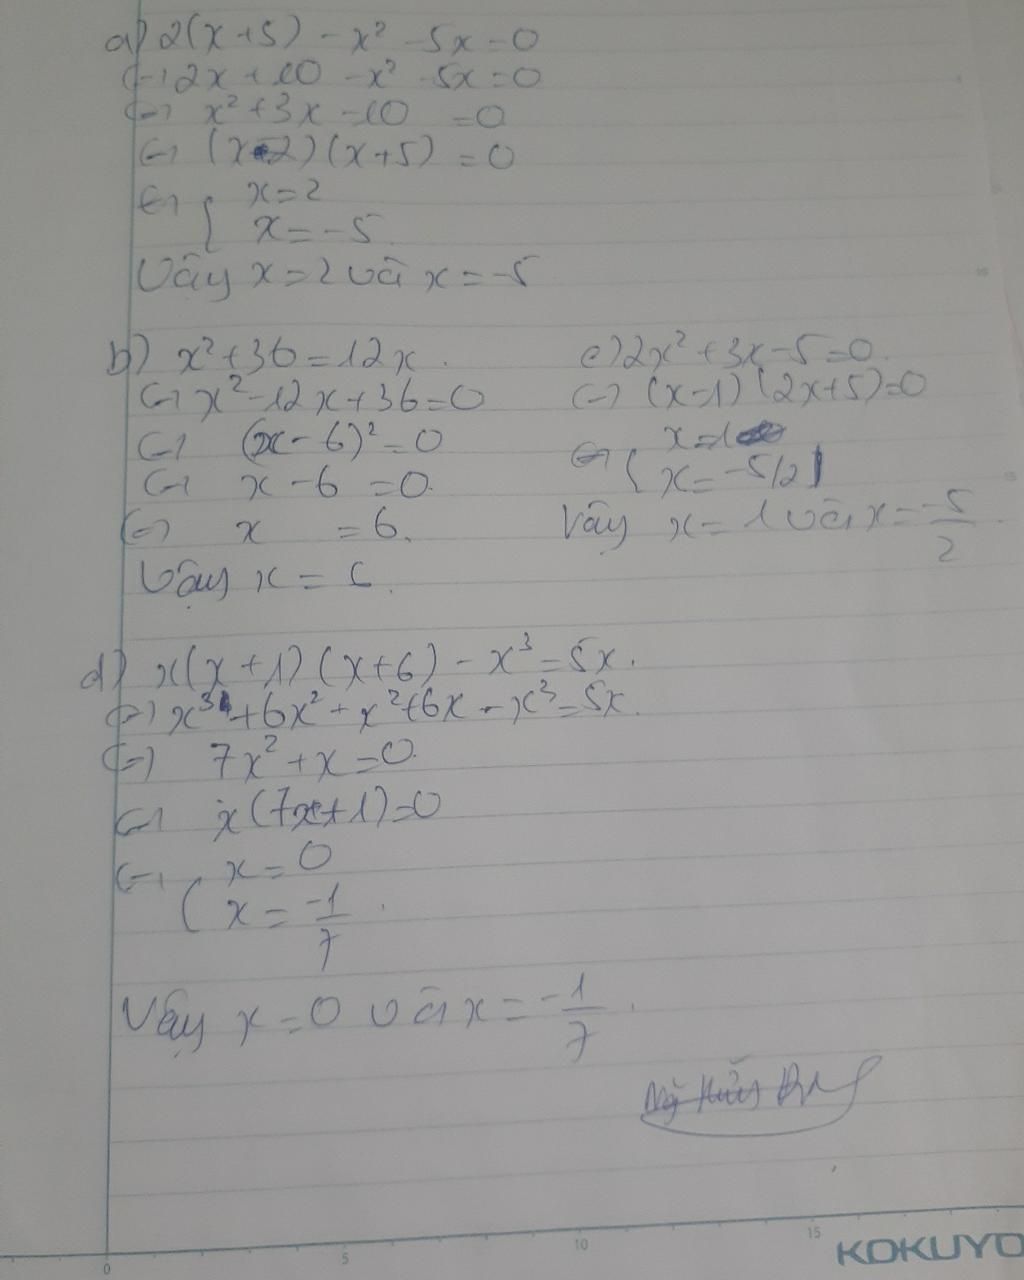 a) 2(x+5) - x² - 5x = 0
(=) 2x + 10 - x² - 5x = 0
(=) x² + 3x - 10 = 0
(=) (x-2)(x+5) = 0
(=) { x = 2
x = -5
Vậy x = 2 và x = -5
b) x² + 36 = 12x.
(=) x² - 12x + 36 = 0
(=) (x - 6)² = 0
(=) x - 6 = 0.
(=) x = 6.
Vậy x = 6.
c) 2x² + 3x - 5 = 0.
(=) (x-1)(2x+5) = 0
(=) { x = 1
x = -5/2
Vậy x = 1 và x = -5/2.
d) x(x+1)(x+6) - x³ = 5x.
(=) x³ + 6x² + x² + 6x - x³ = 5x.
(=) 7x² + x = 0.
(=) x(7x+1) = 0
(=) { x = 0
x = -1/7.
Vậy x = 0 và x = -1/7.
0 5 10 15
KOKUYO